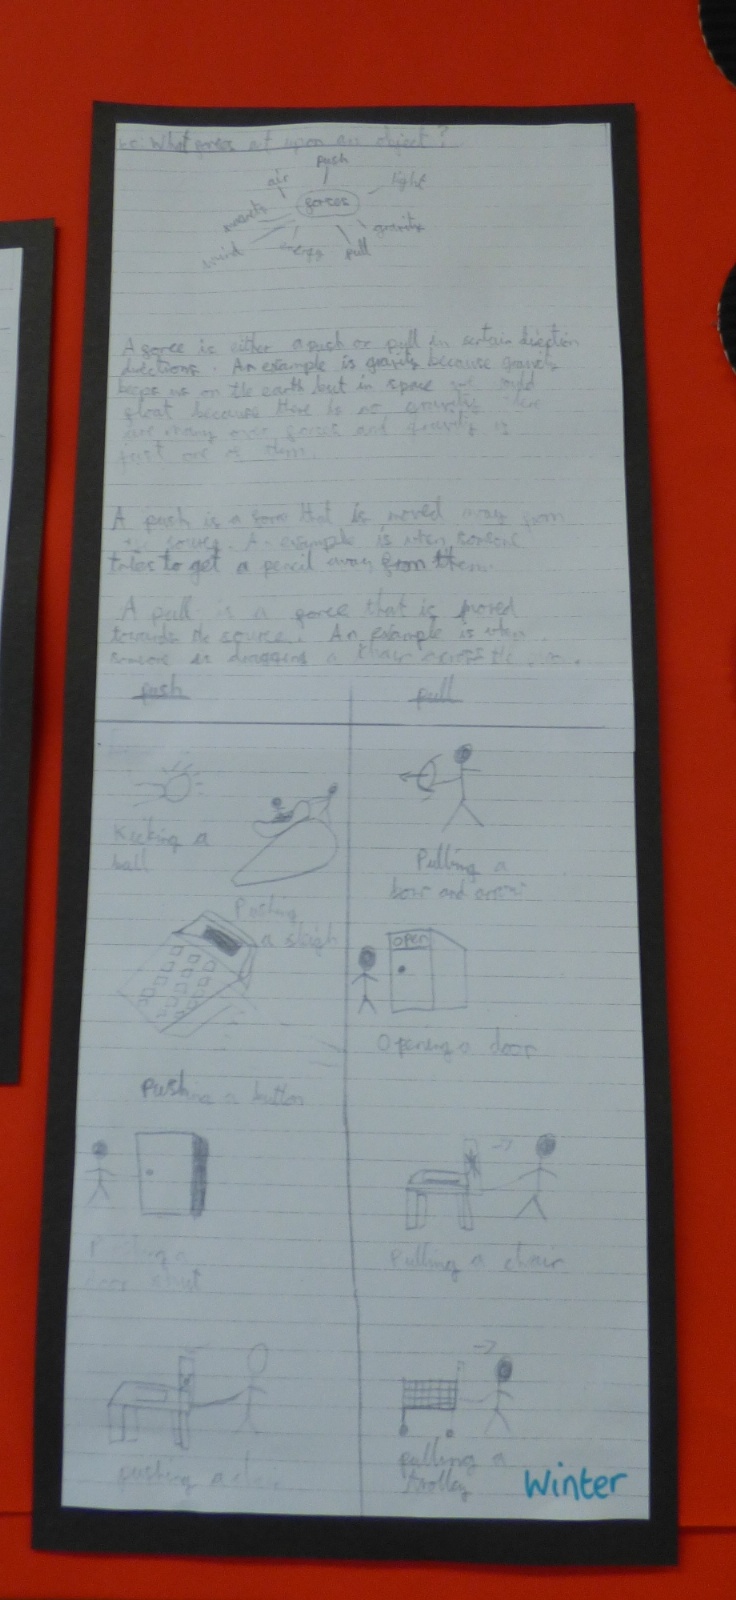 What forces act upon an object?
push
air
light
forces
gravity
wind
pull
A force is either a push or pull in certain direction
directions. An example is gravity because gravity
keeps us on the earth but in space we could
float because there is no gravity. There
are many over forces and gravity is
just one of them.
A push is a force that is moved away from
the source. A example is when someone
tries to get a pencil away from them.
A pull is a force that is moved
towards the source. An example is when
someone is a chair across the
push
pull
Kicking a
ball
Pushing
a sleigh
Pulling a
bow and arrow
open
Opening a door
pushing a button
Pushing a
door shut
Pulling a chair
pushing a
pulling a
trolley
Winter